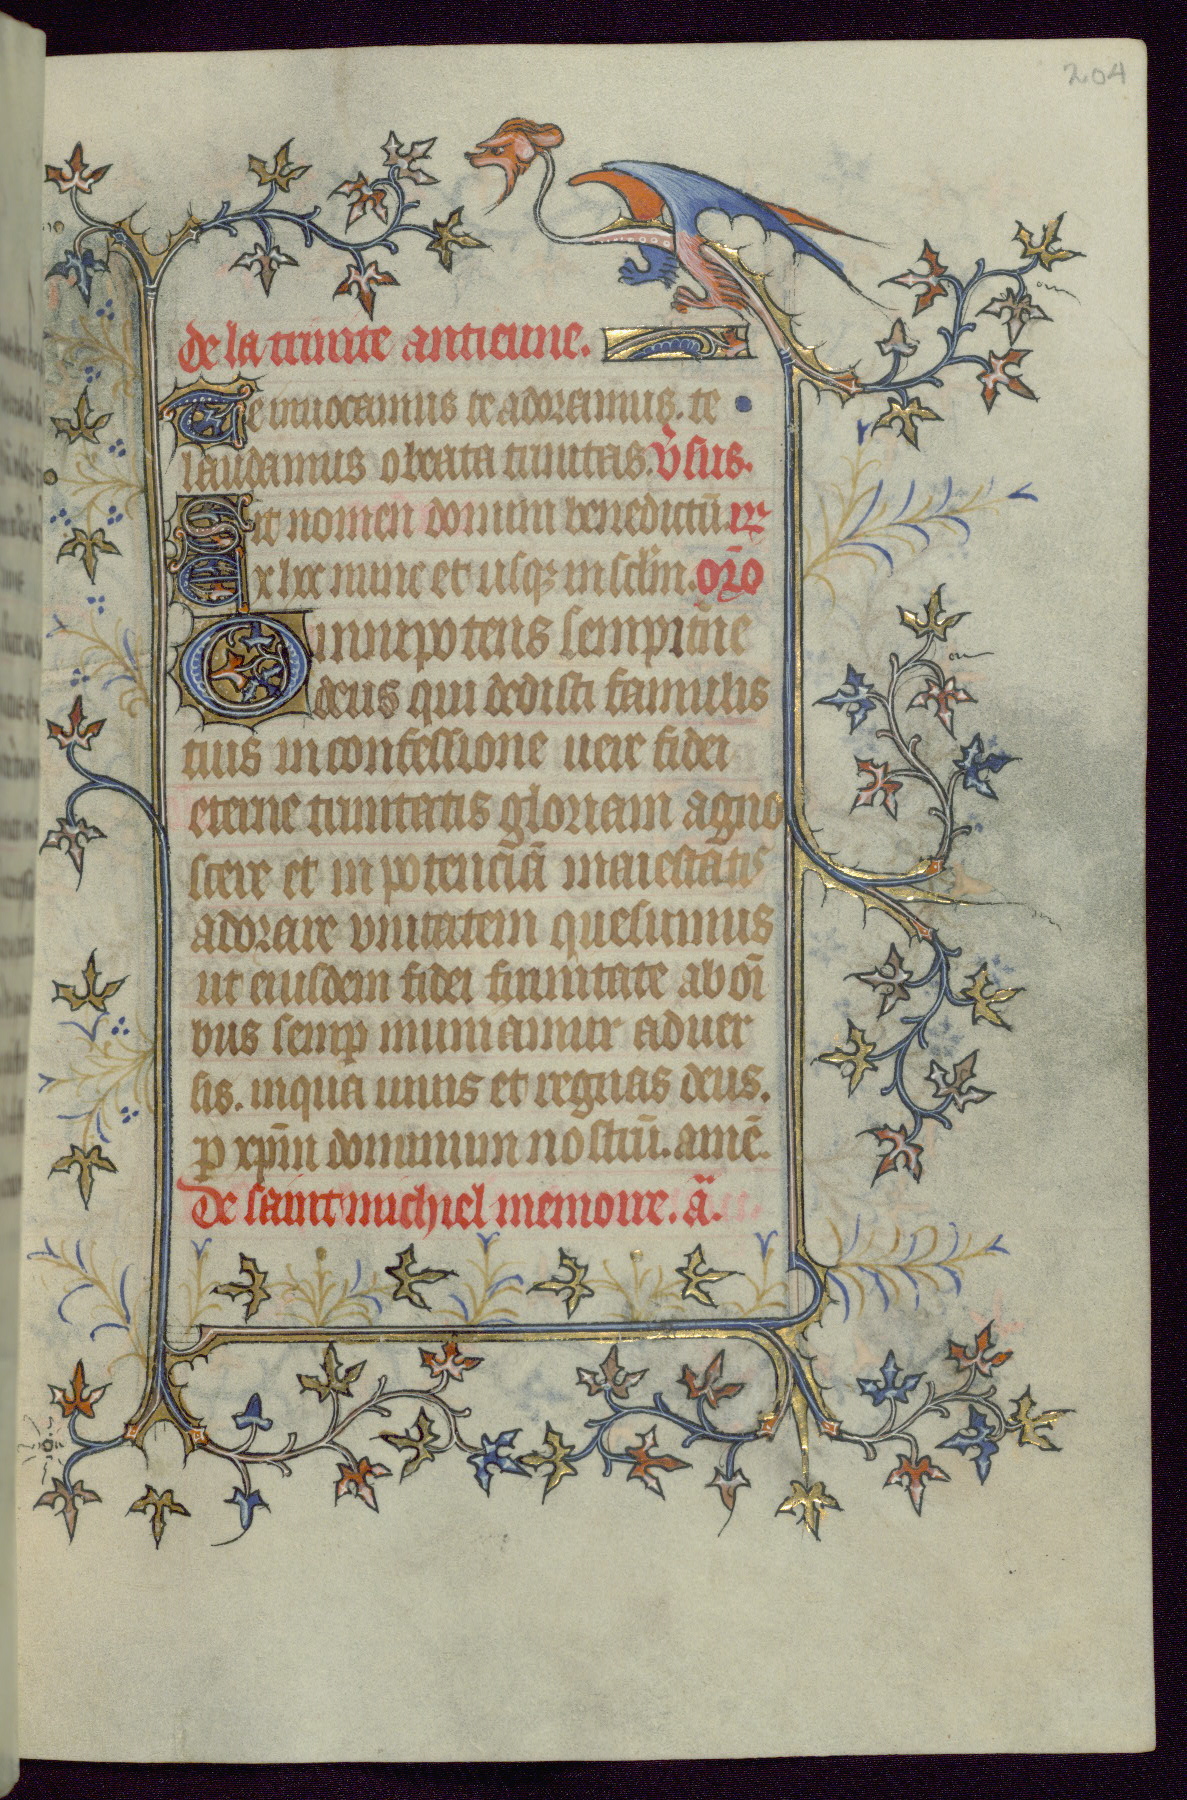 204
de la trinite antienne.
Te inuocamus te adoramus. te
laudamus o beata trinitas. v̄sus.
Sit nomen domini benedictū. rz
Ex hoc nunc et usqꝫ in sclm̄. or̄o
Omnipotens sempit̄ne
deus qui dedisti famulis
tuis in confessione uere fidei
eterne trinitatis gloriam agno
scere et in potencia maiestatis
adorare vnitatem quesumus
ut eiusdem fidei firmitate ab om̄i
bus semꝑ muniamur aduer
sis. in qua uiuis et regnas deus.
ꝑ xp̄m dominum nostrū. amē.
De saint michiel memoire. ā.